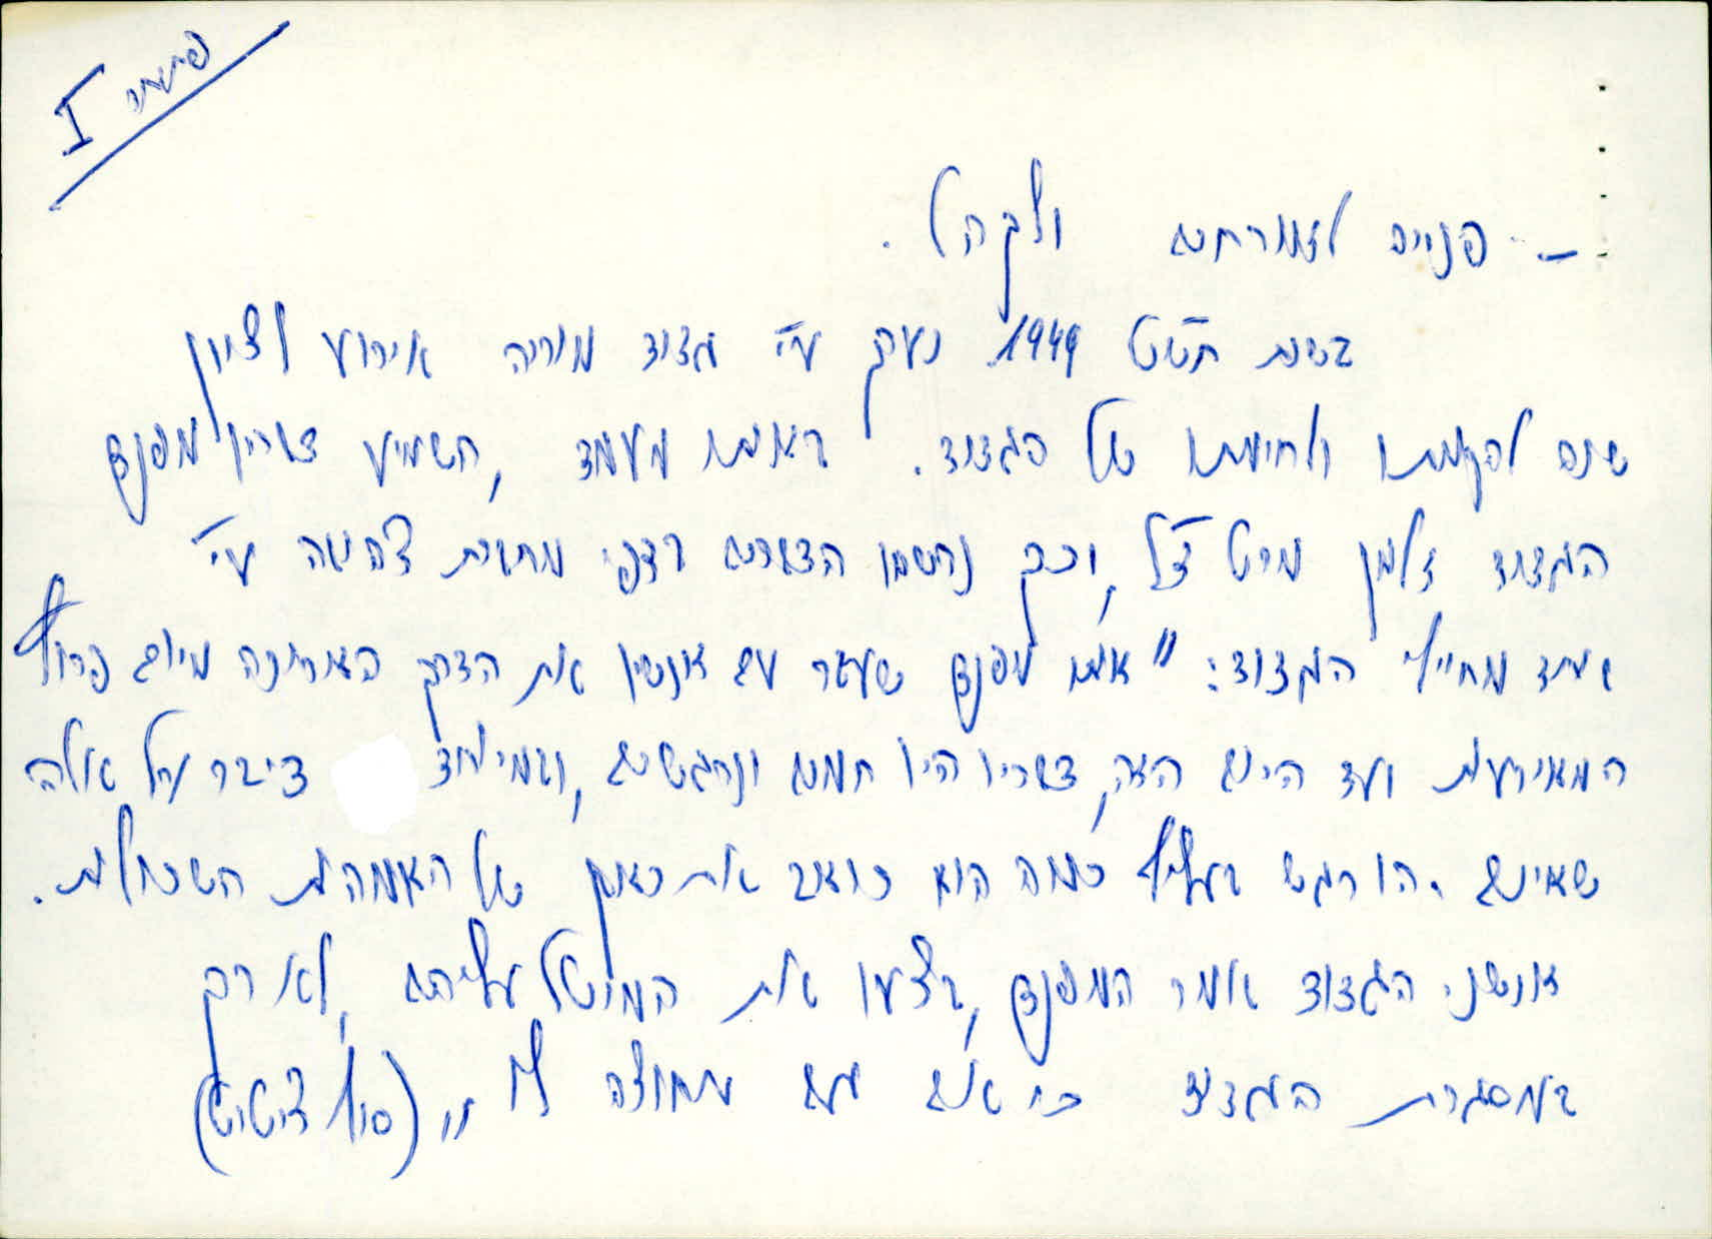 פתיחה I
– פנייה לאורחים ולקהל.
בשנת תש"ט 1949 נערך ע"י גדוד מוריה אירוע לציון
שנה להקמתו ולחימתו של הגדוד. באותו מעמד, השמיע דבריו מפקד
הגדוד זלמן מרט ז"ל, וכך נרשמו הדברים בדפי מחברת צהובה ע"י
אחד מחיילי הגדוד: "אותו מפקד שעבר עם אנשיו את הדרך הארוכה מיום פרוץ
המאורעות ועד היום הזה, דבריו היו חמים ונרגשים, ובמיוחד דיבר על אלה
שאינם. הורגש בעליל כמה הוא כואב את כאבן של האמהות השכולות.
אנשי הגדוד אמר המפקד, ביצעו את המוטל עליהם, לא רק
במסגרת הגדוד כי אם גם מחוצה לו" (סוף ציטוט)